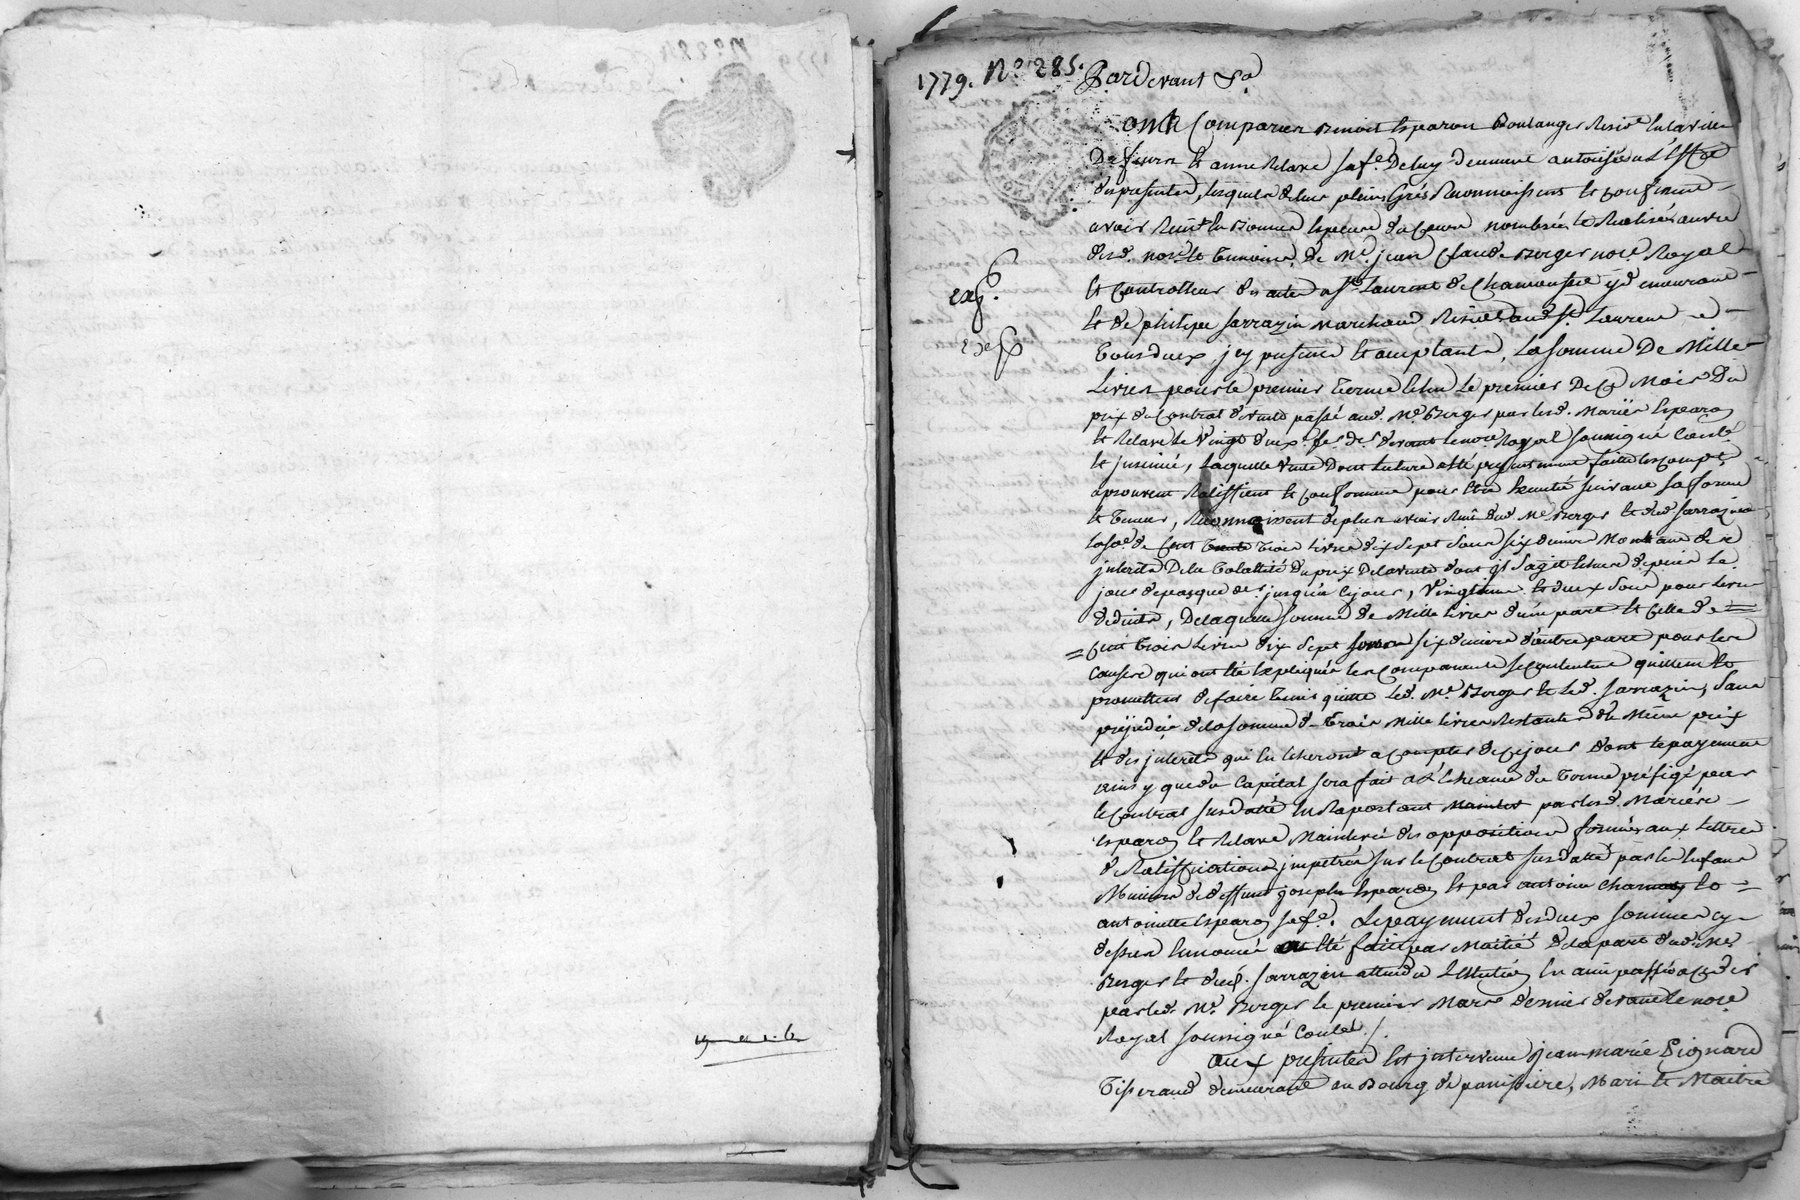 1779. N.° 285. Pardevant &a
ont Comparu Benoit Esparon Boulanger Resid.t en la ville
De feurs et anne Relave sa f.e De luy duement autorisée a l'effet
des presentes, lesquels de leur plein Gré Reconnoissent et confessent
avoir Recu en Bonnes Especes de Cours nombrées et Realisées au vu
desd. no.re et temoins, De M.e jean Claude Berger no.re Royal
exp. et Controlleur des actes a S.t Laurent de Chamousset y demeurant
et De philipe Sarrazin Marchand Resid.t aud. S.t Laurent
exp. tous deux jcy presents et acceptants, La somme De Mille
Livres pour le premier terme echu Le premier De Ce Mois Du
prix du Contrat de vente passé aud. M.e Berger par lesd. Mariés Esparon
et Relave Le Vingt deux fev. d.er devant le no.re Royal soussigné Controllé
et jnsinué, Laquelle vente Dont lecture a été presentement faite les comp.ts
aprouvent Ratiffient et confirment pour être Executé suivant sa forme
et teneur, Reconnoissent de plus avoir Recu dud. M.e Berger et dud. Sarrazin
la so.e de Cent trois Livres dix Sept Sous six deniers Montant des
jnterets De la totallité Du prix De la vente dont il s'agit echus depuis Le
jour de pasque d.er jusqu'a Ce jour, Vingtieme et deux Sous pour Livre
deduits, De laquelle somme de Mille Livres d'une part et Celle de
Cent trois Livres dix Sept sous six deniers d'autre part pour les
Causes qui ont été Expliquées les Comparants se contentent quittent et
promettent de faire tenir quitte led. M.e Berger et led. Sarrazin, Sans
préjudice de la somme de trois Mille Livres Restantes du Même prix
et des jnterets qui en echeront a compter de Ce jour dont le payement
ainsy que du Capital sera fait a l'echeance du terme préfigé par
le Contrat susdatté en Raportant par lesd. Mariés
Esparon et Relave Mainlevée des oppositions formées aux Lettres
de Ratiffications jmpetrées sur le Contrat susdatté par les Enfans
Mineurs de deffunt joseph Esparon et par antoine et
antoinette Esparon sa f.e. Le payement des deux sommes cy
dessus Enoncées a été fait par Moitié de la part dud. M.e
Berger et dud. Sarrazin attendu
par led. M.e Berger le premier Mars dernier devant le no.re
Royal soussigné Controllé ./.
aux presentes est jntervenu jean marie Pignard
Tisserand demeurant au Bourg de panissiere, Mari et Maitre